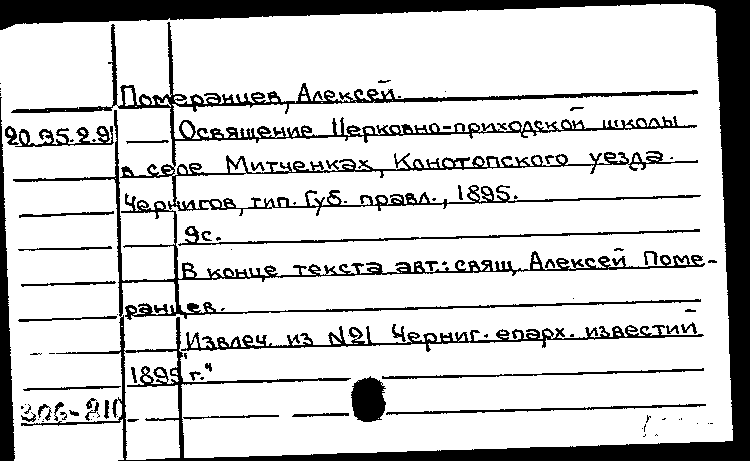 Померанцев, Алексей.
20.95.2.91 Освящение Церковно-приходской школы
в селе Митченках, Конотопского уезда.
Чернигов, тип. Губ. правл., 1895.
9с.
В конце текста авт.: свящ. Алексей Поме-
ранцев.
"Извлеч. из №21 Черниг. епарх. известий
1895 г."
306-810